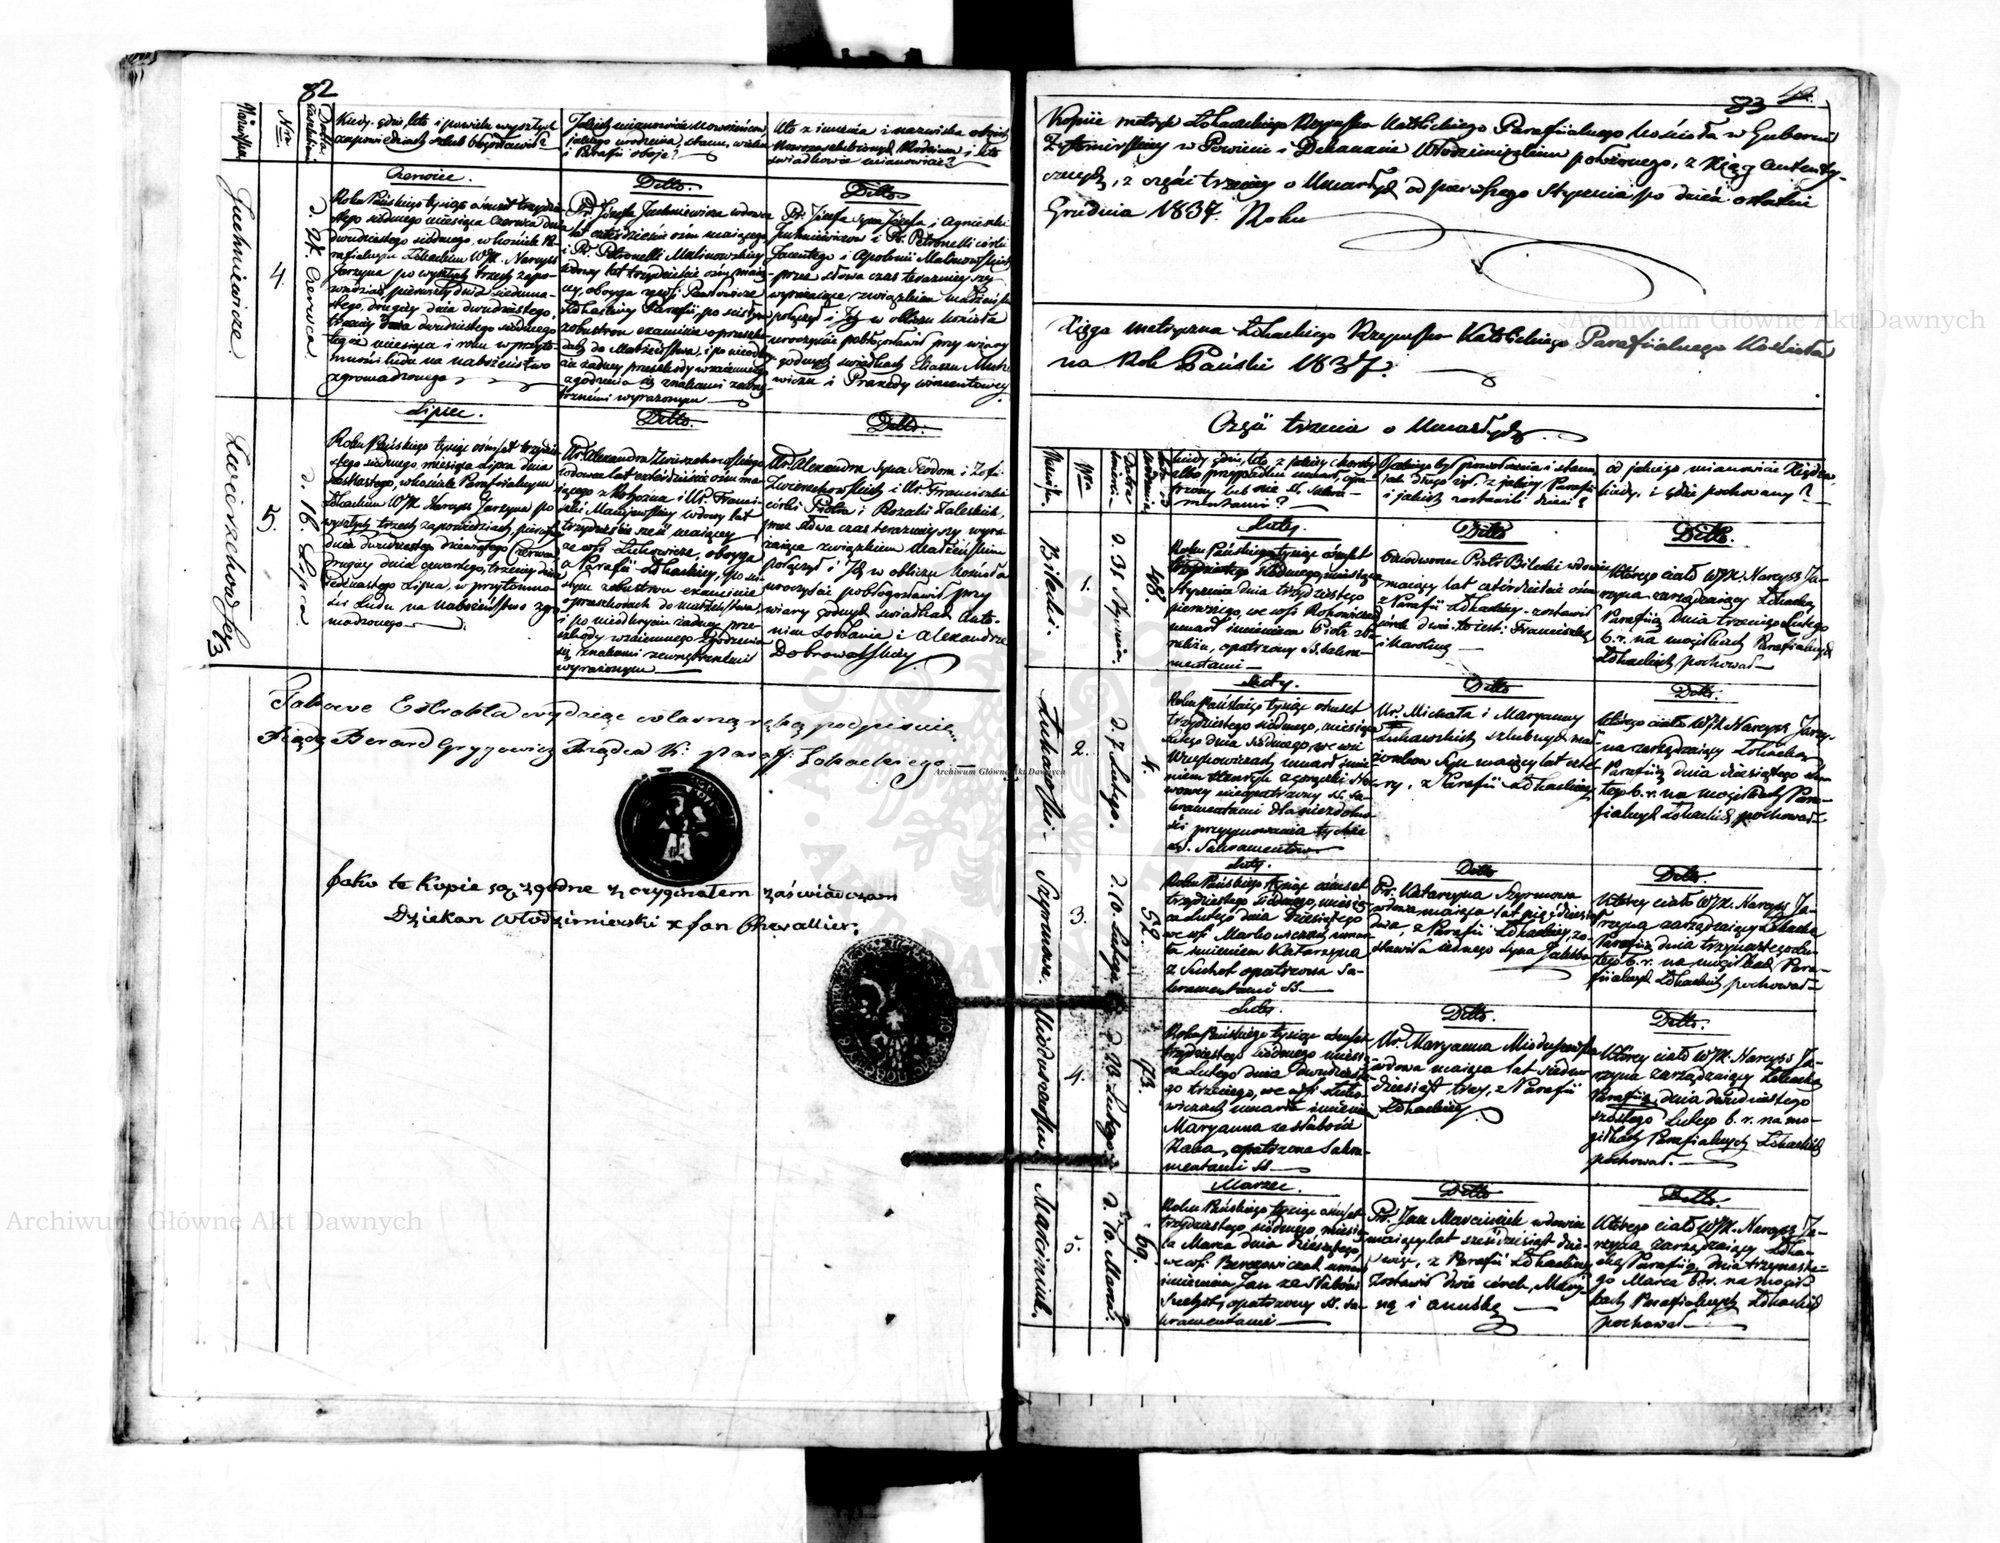 82
Nazwiska.
Nra
Data zaślubin
Kiedy, gdzie, kto i po wielu wyszłych
zapowiedziach szlub błogosławił?
Jakich mianowicie Nowożeńców,
jakiego urodzenia, stanu, wieku
i Parafii oboje?
Kto z imienia i nazwiska
Nowozaszlubionych Rodzicam i kto
świadkowie mianowicie?
Juchniewicze.
4.
d. 27. Czerwca.
Czerwiec.
Roku Pańskiego tysiąc ośmset trzydzie-
stego siódmego miesiąca Czerwca dnia
dwudziestego siódmego, w kościele Pa-
rafialnym Łokackim WJX. Narcyss
Jarzyna po wyszłych trzech zapo-
wiedziach, pierwszey dnia siedmna-
stego, drugiey dnia dwudziestego,
trzeciey dnia dwudziestego siódmego
tegoż miesiąca i roku w przyto-
mności ludu na nabożeństwo
zgromadzonego
Ditto.
Pr. Józefa Juchniewicza wdowca
lat czterdzieście ośm maiącego
i Pr. Petronelli Malinowskiey
wdowy lat trzydzieście ośm maią-
cey, oboyga ze wsi Pawłowicze
Łokackiey Parafii, po ścisłym
zobustron examinie o przeszko-
dach do Małżeństwa, i po nieodkry-
ciu żadney przeszkody wzaiemnego
zgodzenia się znakami zewnę-
trznemi wyrażonym
Ditto.
Pr. Józefa Syna Józefa i Agnieszki
Juchniewiczow i Pr. Petronelli córki
Jacentego i Apolonii Malinowskich
przez słowa czas teraznieyszy
wyrażaiące, związkiem małżeńskim
połączył i Jch w obliczu kościoła
uroczyście pobłogosławił przy wiary
godnych świadkach Eliaszu
i Praxedy Wincentowey
Zwierzchowscy
5.
d. 16. Lipca
Lipiec.
Roku Pańskiego tysiąc ośmset trzydzie-
stego siódmego, miesiąca Lipca dnia
szesnastego, w kościele Parafialnym
Łokackim WJX. Narcyss Jarzyna po
wyszłych trzech zapowiedziach, pierwszey
dnia dwudziestego dziewiątego Czerwca,
drugiey dnia czwartego, trzeciey dnia
jedenastego Lipca, w przytomno-
ści Ludu na nabożeństwo zgro-
madzonego
Ditto.
Ur. Alexandra Zwierzchowskiego
wdowca lat czterdzieście ośm ma-
iącego z Rożyszcz i Ur. Franci-
szki wdowy lat
trzydzieście sześć maiącey
ze wsi Łukowicze, oboyga
z Parafii Łokackiey, po ści-
słym zobustron examinie
o przeszkodach do małżeństwa,
i po nieodkryciu żadney prze-
szkody wzaiemnego zgodzenia
się, znakami zewnętrznemi
wyrażonym
Ditto.
Ur. Alexandra Syna Teodora i Zofii
Zwierzchowskich i Ur. Franciszki
córki Piotra i Rozalii Zaleskich,
przez słowa czas teraznieyszy wyra-
żaiące związkiem Małżeńskim
połączył i Jch w obliczu Kościoła
uroczyście pobłogosławił przy
wiary godnych świadkach Anto-
nim i Alexandrze
Dobrowolskich
Takowe Extrakta wydaiąc własną ręką podpisuię
Xiądz Berard Gryzewicz Rządca K. paraff: Łokackiego
Jako te Kopie są zgodne z oryginałem zaświadczam
Dziekan Włodzimierski x Jan Chewallier.
83
Kopie metryk Łokackiego Rzymsko Katolickiego Parafialnego Kościoła w Gubernii
Żytomirskiey w Powiecie i Dekanacie Włodzimirskim położonego, z Xiąg autenty-
cznych, z części trzeciey o Umarłych od pierwszego Stycznia po dzień ostatni
Grudnia 1837. Roku
Xięga metryczna Łokackiego Rzymsko Katolickiego Parafialnego Kościoła
na Rok Pański 1837.
Część trzecia o Umarłych.
Nazwiska.
Nra
Data śmierci.
Kiedy, gdzie, kto, z jakiey choroby
albo przypadku umarł, opa-
trzony lub nie SS. Sakra-
mentami?
Jakiego był powołania i stanu,
jak długo żył, z jakiey Parafii
i jakich zostawił dzieci?
od jakiego mianowicie Xiędza
kiedy, i gdzie pochowany?
Bilecki.
1.
d. 31 Stycznia.
48.
Luty.
Roku Pańskiego tysiąc ośmset
trzydziestego siódmego, miesiąca
Stycznia dnia trzydziestego
pierwszego, we wsi
umarł imieniem Piotr
opatrzony SS. Sakra-
mentami
Ditto
Piotr Bilecki wdowiec
maiący lat czterdzieście ośm
z Parafii Łokackiey, zostawił
córek dwie to iest: Franciszkę
i Karolinę
Ditto.
Którego ciało WJX. Narcyss Ja-
rzyna zarządzaiący Łokacką
Parafią dnia trzeciego Lutego
b. r. na mogiłkach Parafialnych
Łokackich pochował
Łukawski
2.
d. 7. Lutego.
4.
Luty.
Roku Pańskiego tysiąc ośmset
trzydziestego siódmego, miesiąca
Lutego dnia siódmego, we wsi
umarł imie-
niem Henryk z gorączki Ner-
wowey nieopatrzony SS. Sa-
kramentami dla niezdolno-
ści przyymowania tychże
SS. Sakramentów
Ditto
Ur. Michała i Maryanny
Łukawskich szlubnych mał-
żonków Syn maiący lat czte-
ry, z Parafii Łokackiey
Ditto.
Którego ciało WJX. Narcyss Jarzy-
na zarządzaiący Łokacką
Parafią dnia dziesiątego Lu-
tego b. r. na mogiłkach Para-
fialnych Łokackich pochował
Szymowa.
3.
d. 10. Lutego
52.
Luty.
Roku Pańskiego tysiąc ośmset
trzydziestego siódmego, miesią-
ca Lutego dnia dziesiątego
we wsi Markowiczach umar-
ła imieniem Katarzyna
z Suchot opatrzona Sa-
kramentami SS.
Ditto
Pr. Katarzyna Szymowa
wdowa maiąca lat pięćdziesiąt
dwa, z Parafii Łokackiey, zo-
stawiła iednego syna Jakóba
Ditto.
Którey ciało WJX. Narcyss Ja-
rzyna zarządzaiący Łokacką
Parafią, dnia trzynastego Lu-
tego b. r. na mogiłkach Para-
fialnych Łokackich pochował
Mioduszewska
4.
d. 23. Lutego
73.
Luty.
Roku Pańskiego tysiąc ośmset
trzydziestego siódmego miesią-
ca Lutego dnia dwudzieste-
go trzeciego, we wsi Łuko-
wiczach umarła imieniem
Maryanna ze słabości
Raka, opatrzona Sakra-
mentami SS.
Ditto.
Ur. Maryanna Mioduszewska
wdowa maiąca lat siedm-
dziesiąt trzy, z Parafii
Łokackiey
Ditto.
Którey ciało WJX. Narcyss Ja-
rzyna zarządzaiący Łokacką
Parafią, dnia dwudziestego
szóstego Lutego b. r. na mo-
giłkach Parafialnych Łokackich
pochował.
Marciniuk.
5.
d. 10. Marca.
69.
Marzec.
Roku Pańskiego tysiąc ośmset
trzydziestego siódmego, miesią-
ca Marca dnia dziesiątego
we wsi umarł
imieniem Jan ze słabości
Suchot, opatrzony SS. Sa-
kramentami
Ditto
Pr. Jan Marciniuk wdowiec
maiący lat sześćdziesiąt dzie-
więć, z Parafii Łokackiey
Zostawił dwie córek, Mary-
nę i Anuśkę
Ditto.
Którego ciało WJX. Narcyss Ja-
rzyna zarządzaiący Łokac-
ką Parafią, dnia trzynaste-
go Marca b. r. na mogił-
kach Parafialnych Łokackich
pochował
Archiwum Główne Akt Dawnych
Archiwum Główne Akt Dawnych
Archiwum Główne Akt Dawnych